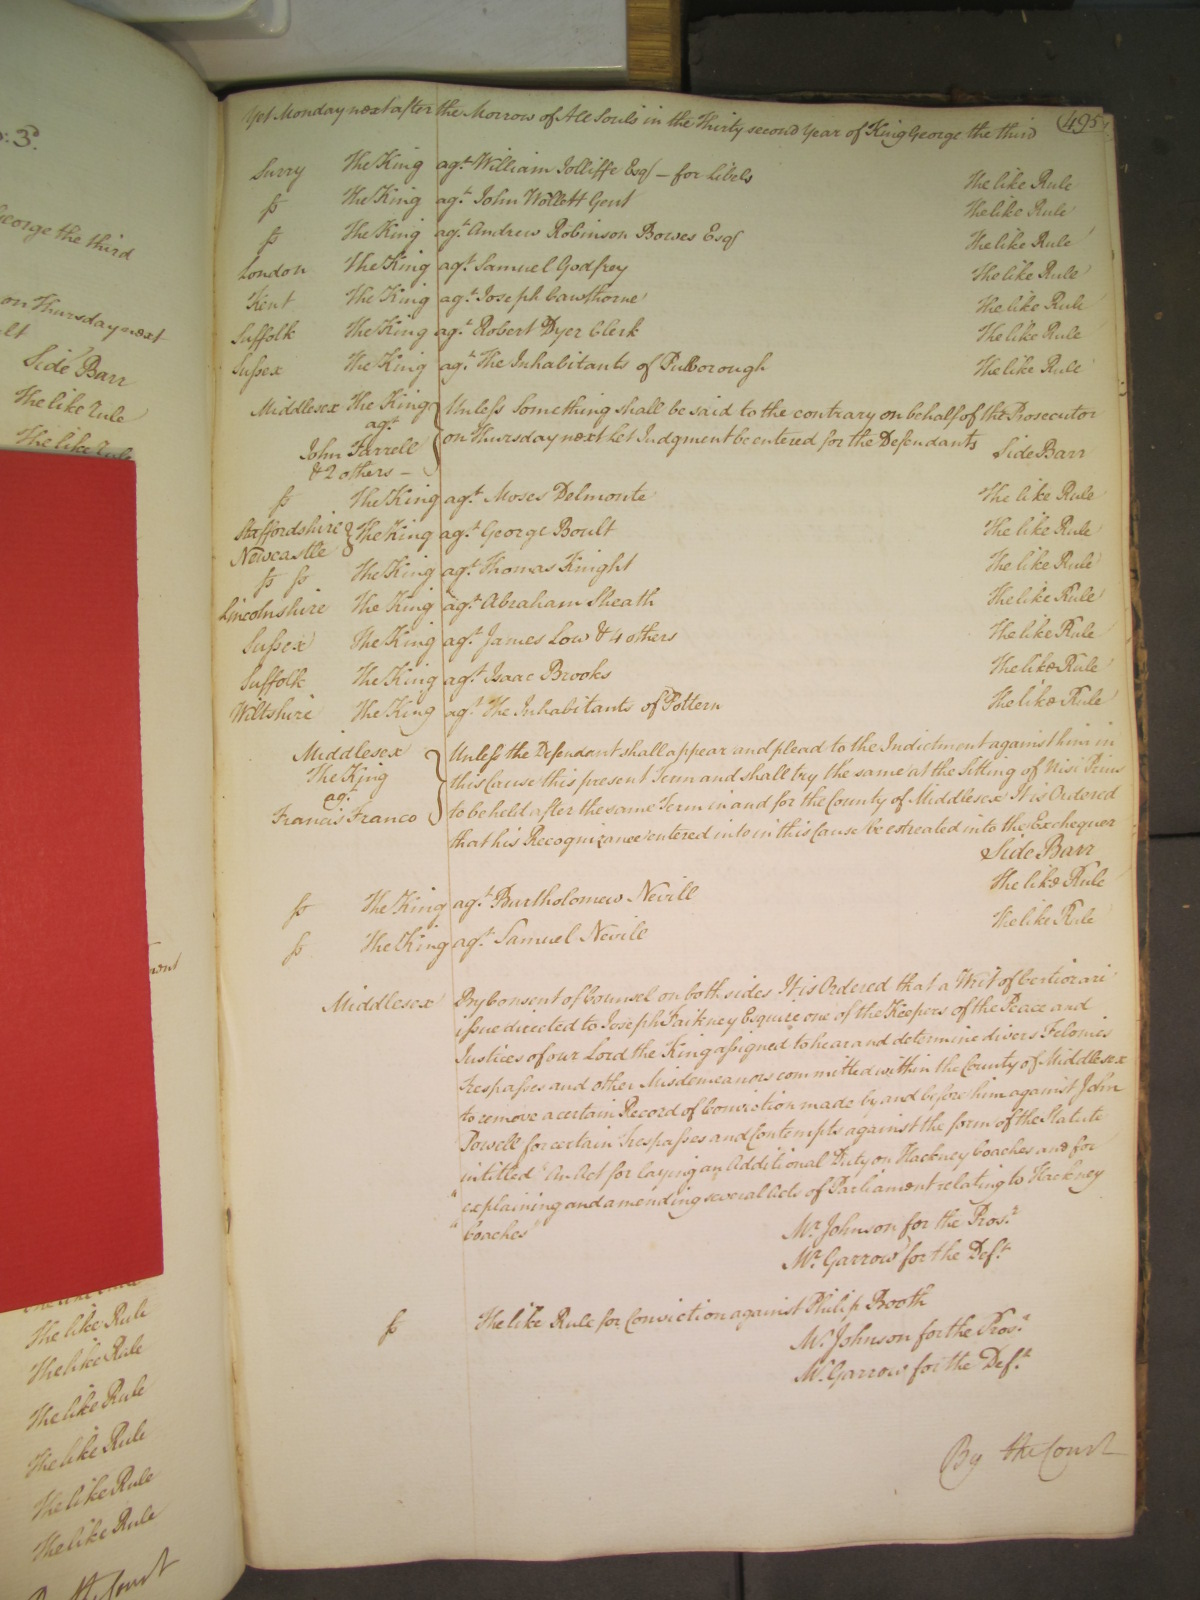 o: 3.
George the third
on Thursday next
Side Barr
The like Rule
The like Rule
The like Rule
The like Rule
The like Rule
The like Rule
The like Rule
The like Rule
By the Court
Yet Monday next after the Morrow of All Souls in the Thirty second Year of King George the third 495
Surry The King agt William Jolliffe Esqr – for Libels The like Rule
ss The King agt John Wollett Gent The like Rule
ss The King agt Andrew Robinson Bowes Esqr The like Rule
London The King agt Samuel Godfrey The like Rule
Kent The King agt Joseph Cawthorne The like Rule
Suffolk The King agt Robert Dyer Clerk The like Rule
Sussex The King agt The Inhabitants of Pulborough The like Rule
Middlesex The King Unless Something shall be said to the contrary on behalf of the Prosecutor
agt
John Farrell on Thursday next Let Judgment be entered for the Defendants Side Barr
& 2 others –
ss The King agt Moses Delmonte The like Rule
Staffordshire
Newcastle The King agt George Boult The like Rule
ss ss The King agt Thomas Knight The like Rule
Lincolnshire The King agt Abraham Sheath The like Rule
Sussex The King agt James Low & 4 others The like Rule
Suffolk The King agt Isaac Brooks The like Rule
Wiltshire The King agt The Inhabitants of Pottern The like Rule
Middlesex Unless the Defendant shall appear and plead to the Indictment against him in
The King this Cause this present Term and shall try the same at the Sitting of Nisi Prius
agt
Francis Franco to be held after the same Term in and for the County of Middlesex It is Ordered
that his Recognizance entered into in this Cause be estreated into the Exchequer
Side Barr
ss The King agt Bartholomew Nevill The like Rule
ss The King agt Samuel Nevill The like Rule
Middlesex By Consent of Counsel on both sides It is Ordered that a Writ of Certiorari
issue directed to Joseph Faikney Esquire one of the Keepers of the Peace and
Justices of our Lord the King assigned to hear and determine divers Felonies
trespasses and other Misdemeanors committed within the County of Middlesex
to remove a certain Record of Conviction made by and before him against John
Powell for certain trespasses and Contempts against the form of the Statute
intitled "An Act for laying an Additional Duty on Hackney Coaches and for
" explaining and amending several Acts of Parliament relating to Hackney
" Coaches"
Mr Johnson for the Prosr
Mr Garrow for the Deft
ss The like Rule for Conviction against Philip Booth
Mr Johnson for the Prosr
Mr Garrow for the Deft
By the Court